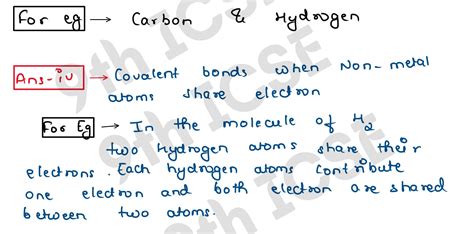 For eg → Carbon & Hydrogen
Ans-iv → Covalent bonds when Non-metal
atoms share electron
For Eg → In the molecule of H2
two hydrogen atoms share their
electrons. Each hydrogen atoms contribute
one electron and both electron are shared
between two atoms.
9th ICSE
9th ICSE